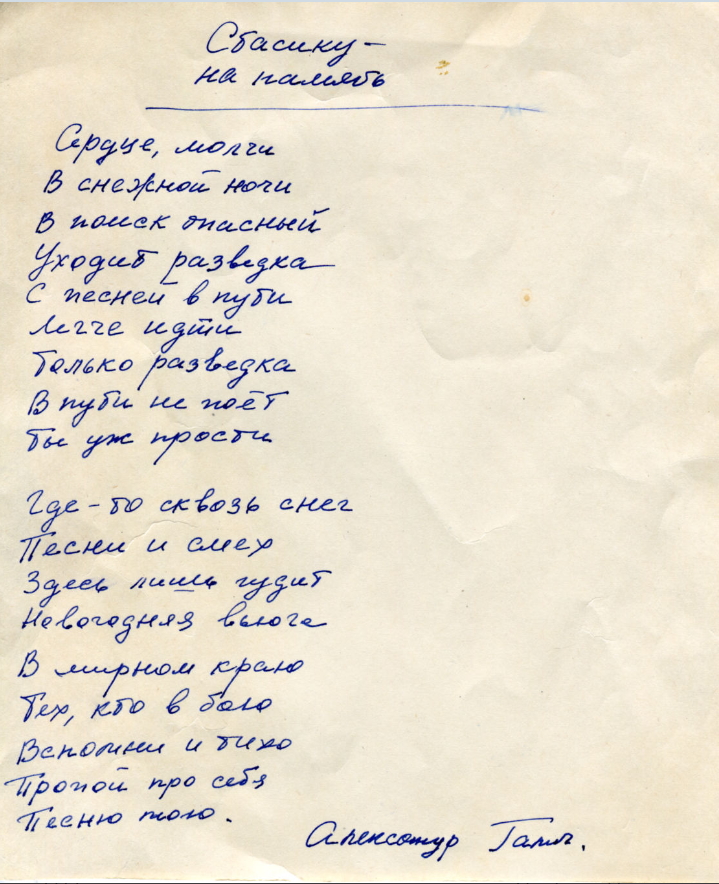 Стасику –
на память
Сердце, молчи
В снежной ночи
В поиск опасный
Уходит разведка
С песней в пути
Легче идти
Только разведка
В пути не поёт
Ты уж прости
Где-то сквозь снег
Песни и смех
Здесь лишь гудит
Новогодняя вьюга
В мирном краю
Тех, кто в бою
Вспомни и тихо
Пропой про себя
Песню мою.
Александр